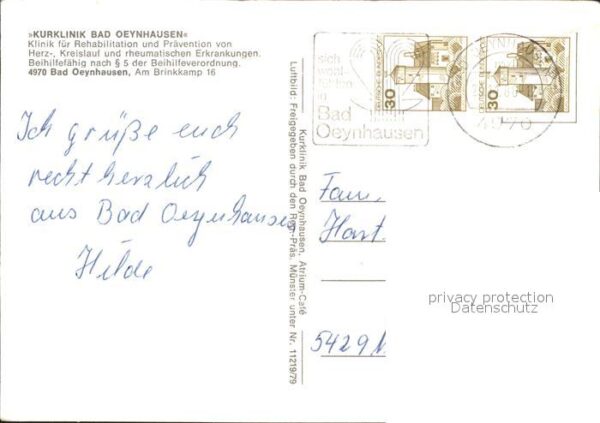 »KURKLINIK BAD OEYNHAUSEN«
Klinik für Rehabilitation und Prävention von
Herz-, Kreislauf und rheumatischen Erkrankungen.
Beihilfefähig nach § 5 der Beihilfeverordnung.
4970 Bad Oeynhausen, Am Brinkkamp 16
Ich grüße euch
recht herzlich
aus Bad Oeynhausen
Hilde
Kurklinik Bad Oeynhausen, Atrium-Café
Luftbild: Freigegeben durch den Reg.-Präs. Münster unter Nr. 11219/79
sich
wohl
fühlen
in
Bad
Oeynhausen
DEUTSCHE BUNDESPOST
30
DEUTSCHE BUNDESPOST
30
4970
Fam.
Horst
5429
privacy protection
Datenschutz